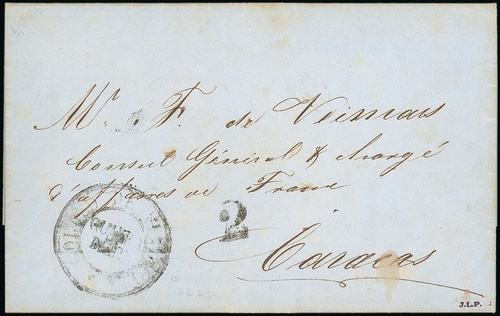 Mr. F. de
Consul Général & chargé
d'affaires de France
2
Caracas
J.L.P.